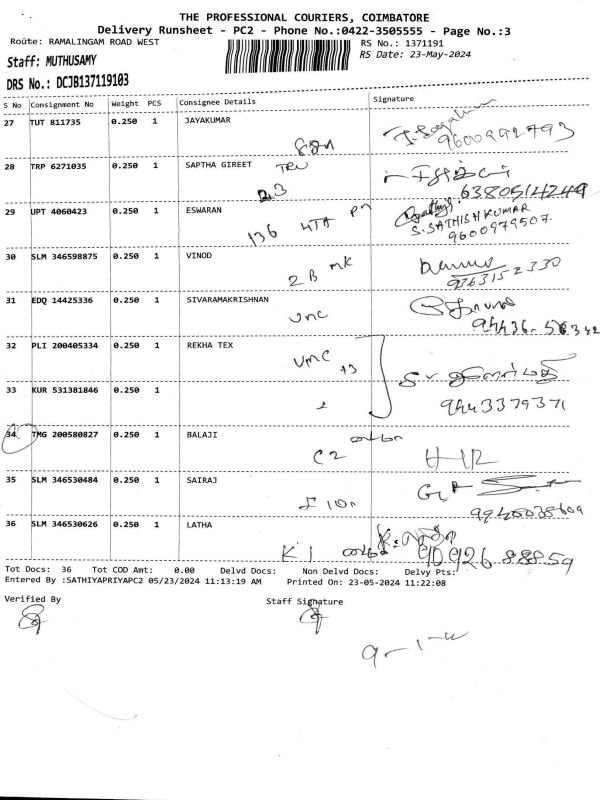 THE PROFESSIONAL COURIERS, COIMBATORE
Delivery Runsheet - PC2 - Phone No.:0422-3505555 - Page No.:3
Route: RAMALINGAM ROAD WEST
RS No.: 1371191
Staff: MUTHUSAMY
RS Date: 23-May-2024
DRS No.: DCJB137119103
S No Consignment No Weight PCS Consignee Details Signature
27 TUT 811735 0.250 1 JAYAKUMAR
9600992793
28 TRP 6271035 0.250 1 SAPTHA GIREET
23 6380514249
29 UPT 4060423 0.250 1 ESWARAN
136 S.SATHISHKUMAR
9600979507.
30 SLM 346598875 0.250 1 VINOD
2 B mk 9363152330
31 EDQ 14425336 0.250 1 SIVARAMAKRISHNAN
32 PLI 200405334 0.250 1 REKHA TEX
VMC
33 KUR 531381846 0.250 1
9443379371
34 TMG 200580827 0.250 1 BALAJI
C2
35 SLM 346530484 0.250 1 SAIRAJ
36 SLM 346530626 0.250 1 LATHA
K1 90926 88859
Tot Docs: 36 Tot COD Amt: 0.00 Delvd Docs: Non Delvd Docs: Delvy Pts:
Entered By :SATHIYAPRIYAPC2 05/23/2024 11:13:19 AM Printed On: 23-05-2024 11:22:08
Verified By Staff Signature